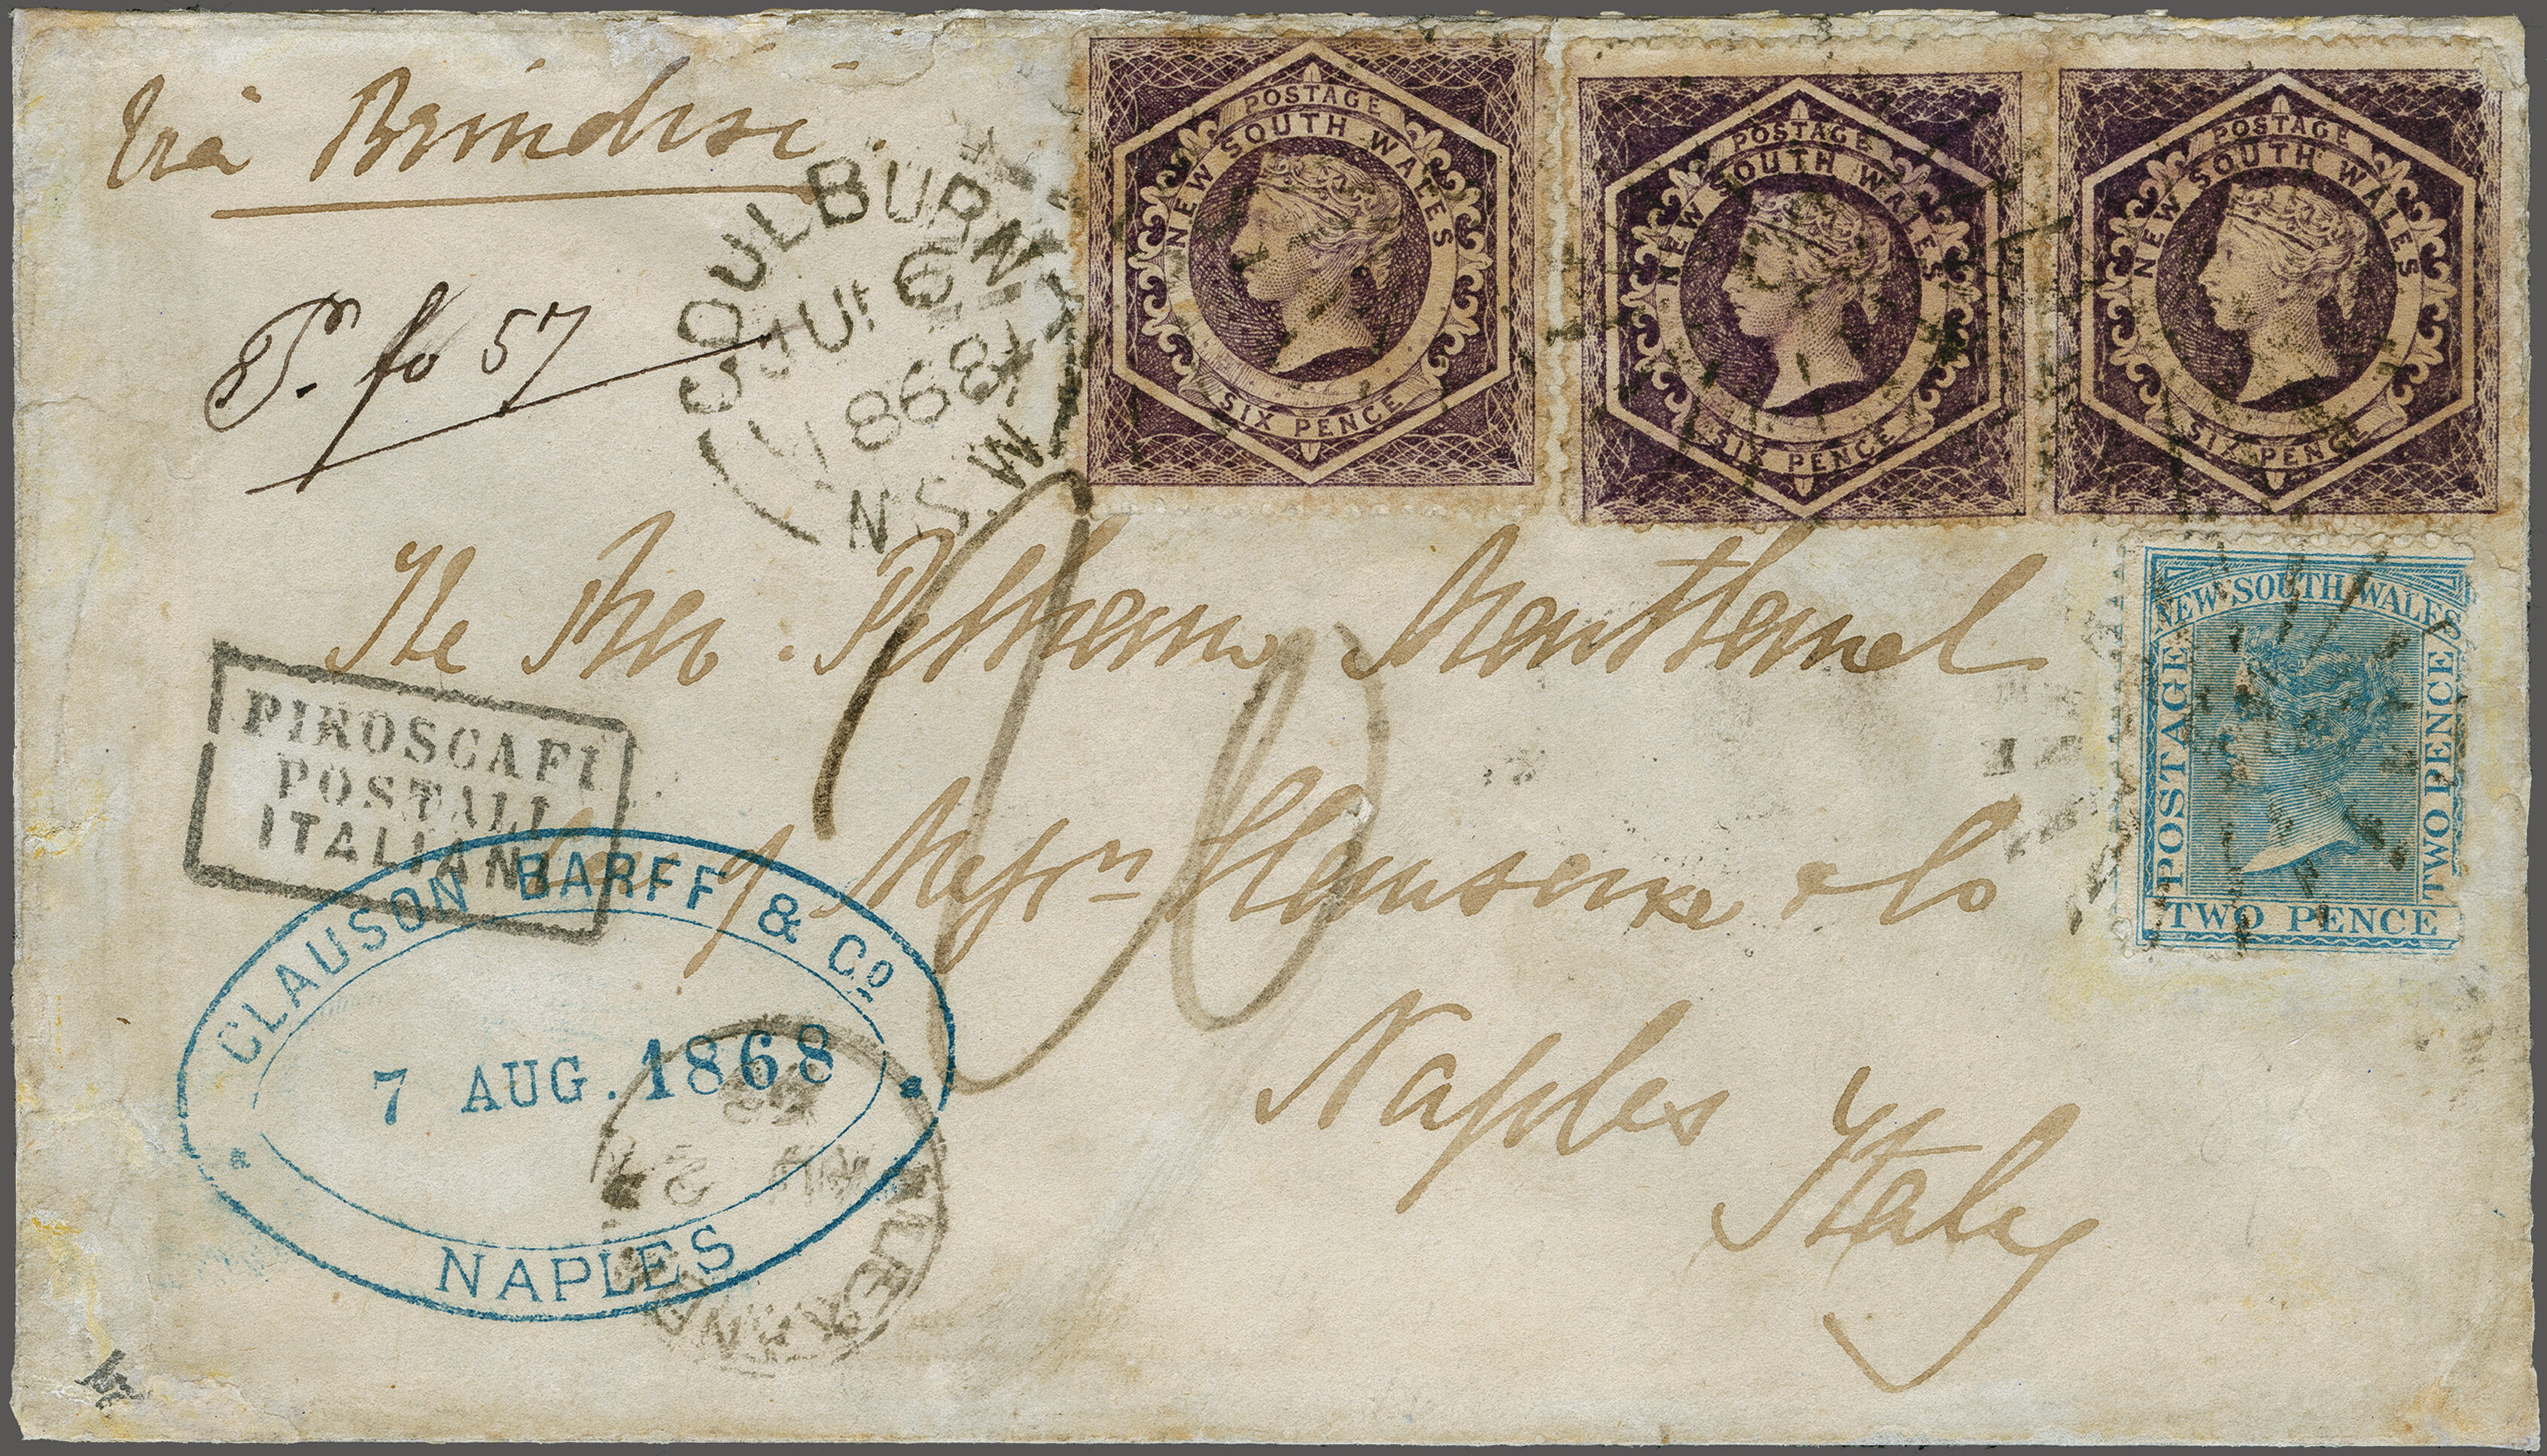 Via Brindisi.
GOULBURN
JU 6
1868
N.S.W
POSTAGE
NEW SOUTH WALES
SIX PENCE
POSTAGE
NEW SOUTH WALES
SIX PENCE
POSTAGE
NEW SOUTH WALES
SIX PENCE
fo 57
The Rev. Pelham
NEW SOUTH WALES
POSTAGE
TWO PENCE
TWO PENCE
PIROSCAFI
POSTALI
ITALIANI
& Co
Naples
Italy
CLAUSON BARFF & Co
7 AUG. 1868
NAPLES